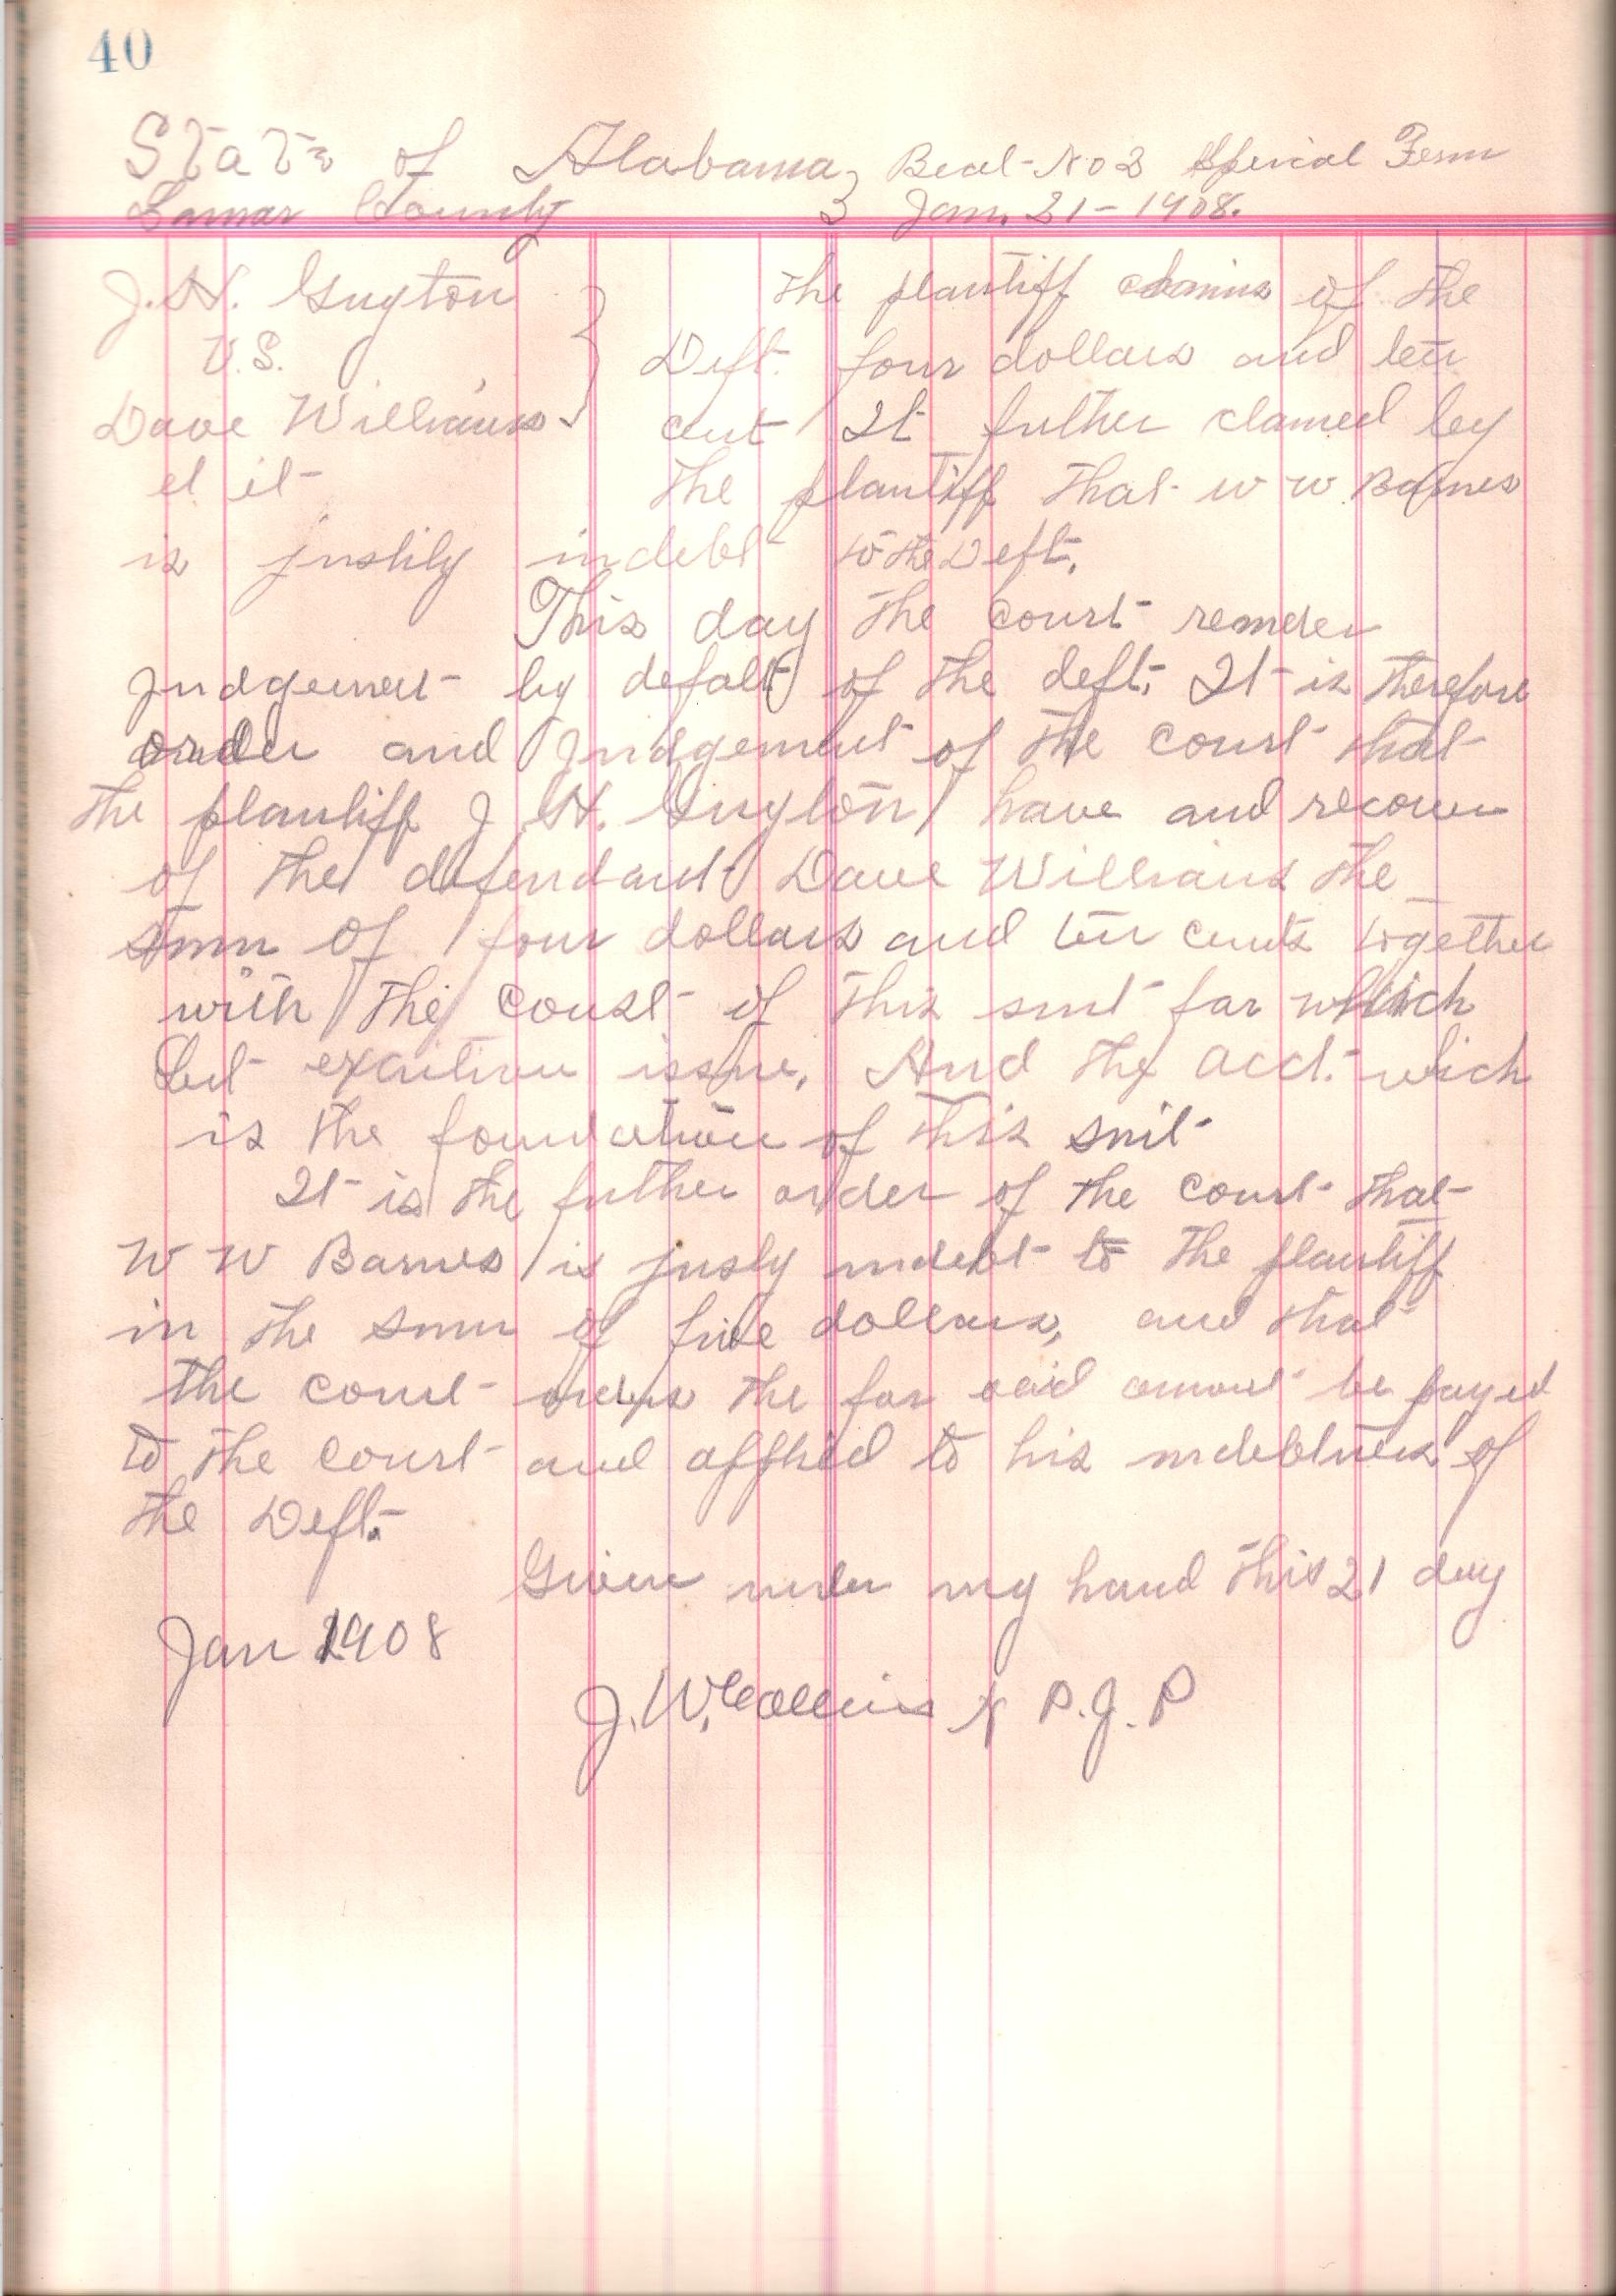 40
State of Alabama } Beat No 2 Special Term
Lamar County } Jan. 21 - 1908.
J. H. Guyton } The plantiff claims of the
V.S. Deft. four dollars and ten
Dave Williams cent It futher clamed by
et il the plantiff that W W Barnes
is justily indebt to the Deft.
This day the court remder
Judgement by defalt of the deft. It is therefore
order and Judgement of the court that
the plantiff J H. Guyton have and recover
of the defendant Dave Williams the
sum of four dollars and ten cents together
with the coust of this suit for which
Let excution issue. And the acct. wich
is the foundation of this suit
It is the futher order of the court that
W W Barnes is jusly indebt to the plantiff
in the sum of five dollars, and that
the court orders the for said amount be payed
to the court and applied to his indebtness of
the Deft.
Given under my hand this 21 day
Jan 1908
J. W. Collins N P. J. P